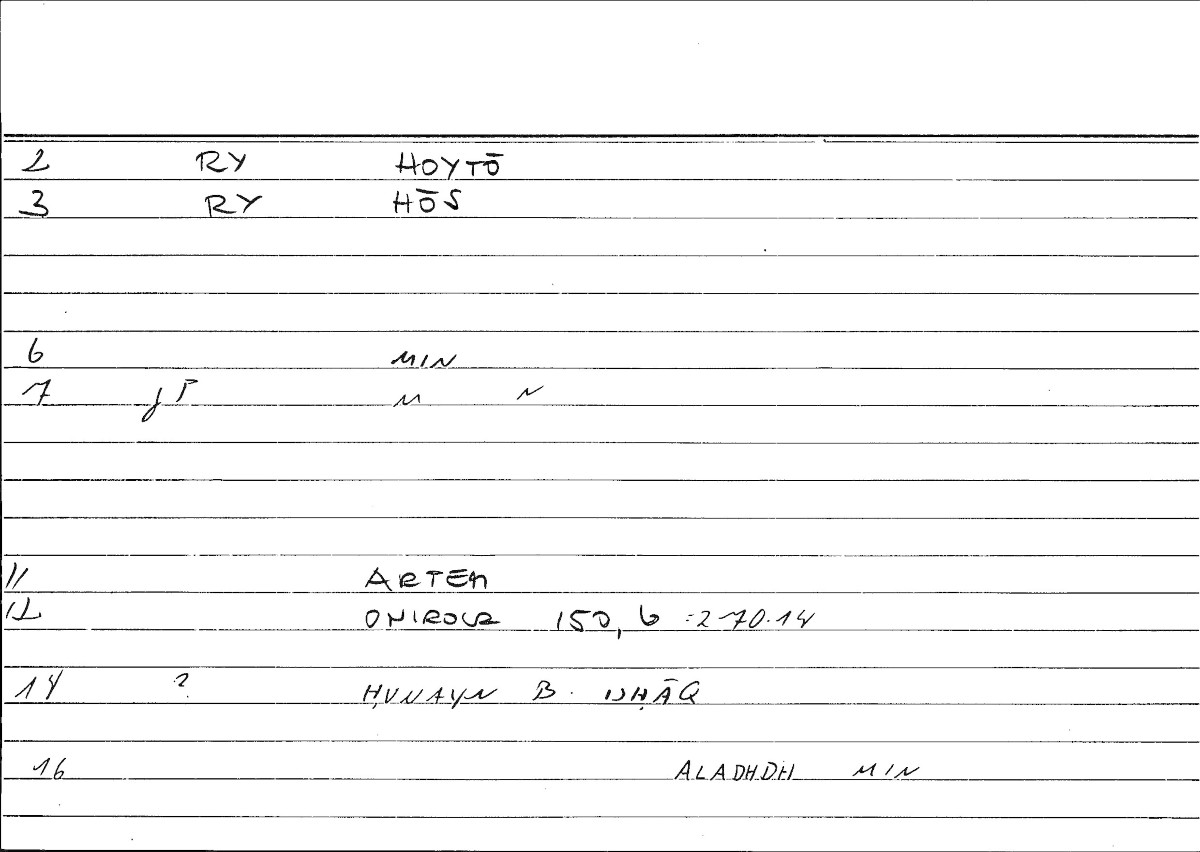 2 RY HOYTŌ
3 RY HŌS
6 MIN
7 M N
11 ARTEM
12 ONIROCR 150, 6 = 270.14
14 ? ḤUNAYN B. ISḤĀQ
16 ALADHDH MIN